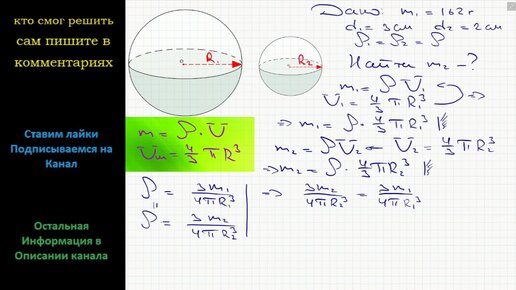 кто смог решить
сам пишите в
комментариях
Ставим лайки
Подписываемся на
Канал
Остальная
Информация в
Описании канала
R₁
R₂
Дано: m₁ = 162 г
d₁ = 3 см d₂ = 2 см
ρ₁ = ρ₂ = ρ
Найти m₂ - ?
m₁ = ρ V₁
V₁ = 4/3 π R₁³ ⇒
⇒ m₁ = ρ · 4/3 π R₁³
m = ρ · V
Vш = 4/3 π R³
m₂ = ρ V₂ V₂ = 4/3 π R₂³
⇒ m₂ = ρ · 4/3 π R₂³
ρ = 3m₁/4πR₁³
ρ = 3m₂/4πR₂³
⇒ 3m₂/4πR₂³ = 3m₁/4πR₁³